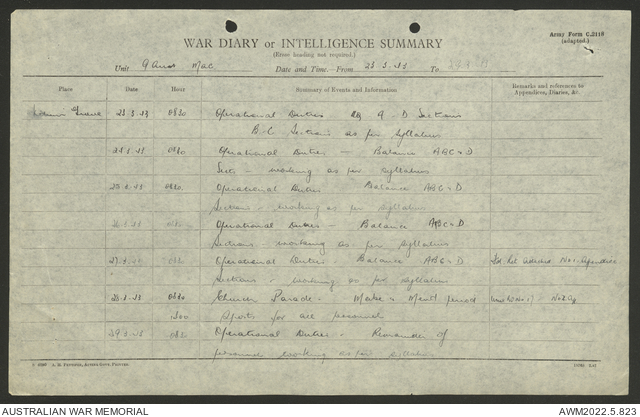 Army Form C.2118
(adapted.)
WAR DIARY or INTELLIGENCE SUMMARY
(Erase heading not required.)
Unit 9 Aust Mac Date and Time.—From 23.3.43 To
Place Date Hour Summary of Events and Information Remarks and references to Appendices, Diaries, &c.
23.3.43 0830 Operational Duties HQ A D Sections
B.C. Sections as per syllabus
0830 Operational Duties - Balance ABC & D
Sects - working as per syllabus
0830 Operational Duties Balance ABC & D
Sections - working as per syllabus
0830 Operational Duties - Balance ABC & D
Sections - working as per syllabus
0830 Operational Duties - Balance ABC & D No 1 Appendice
Sections - working as per syllabus
0830 Church Parade - Make & Mend period
1300 Sports for all personnel
29.3.43 0830 Operational Duties - Remainder of
personnel working as per syllabus
AUSTRALIAN WAR MEMORIAL
AWM2022.5.823